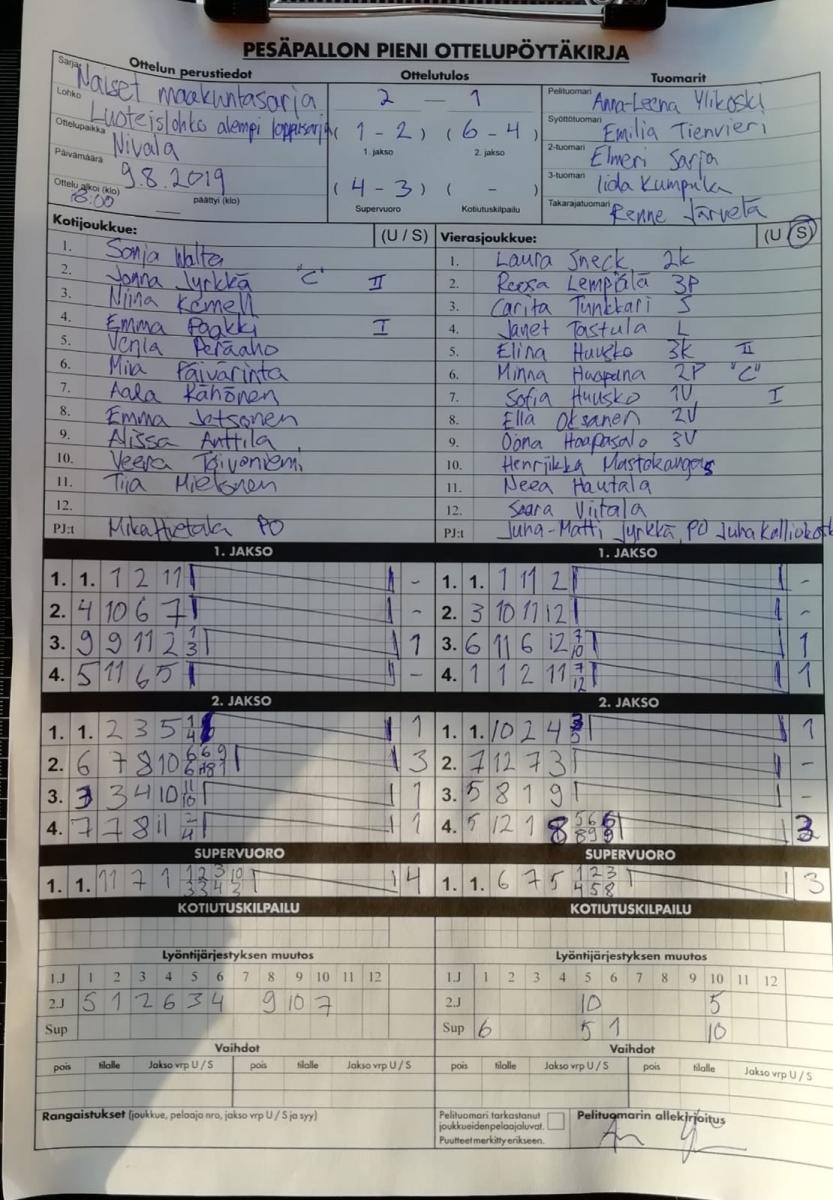 PESÄPALLON PIENI OTTELUPÖYTÄKIRJA
Ottelun perustiedot
Sarja Naiset maakuntasarja
Lohko Luoteislohko alempi loppusarja
Ottelupaikka Nivala
Päivämäärä 9.8.2019
Ottelu alkoi (klo) 18:00 päättyi (klo)
Ottelutulos
2 — 1
(1 - 2) (6 - 4)
1. jakso 2. jakso
(4 - 3) ( - )
Supervuoro Kotiutuskilpailu
Tuomarit
Pelituomari Anna-Leena Ylikoski
Syöttötuomari Emilia Tienvieri
2-tuomari Elmeri Sarja
3-tuomari Iida Kumpula
Takarajatuomari Renne Järvelä
Kotijoukkue: (U / S)
1. Sonja Walta
2. Jonna Jyrkkä "C" II
3. Niina Kemell
4. Emma Paakki I
5. Venla Peräaho
6. Mia Päivärinta
7. Aada Kähönen
8. Emma Jatsonen
9. Alissa Anttila
10. Veera Toivoniemi
11. Tiia Mielonen
12.
PJ:t Mika Hietala PO
Vierasjoukkue: (U / S)
1. Laura Sneck 2k
2. Roosa Lempälä 3P
3. Carita Tunkkari S
4. Janet Tastula L
5. Elina Huusko 3k II
6. Minna Haapana 2P "C"
7. Sofia Huusko 1V I
8. Ella Oksanen 2V
9. Oona Haapasalo 3V
10. Henriikka Mastokangas
11. Neea Hautala
12. Saara Viitala
PJ:t Juha-Matti Jyrkkä, PO Juha Kalliokoski
1. JAKSO 1. JAKSO
1. 1. 1 2 11 - 1. 1. 1 11 2 -
2. 4 10 6 7 - 2. 3 10 11 12 -
3. 9 9 11 2 1 3 1 3. 6 11 6 12 7 10 1
4. 5 11 6 5 - 4. 1 1 2 11 7 12 1
2. JAKSO 2. JAKSO
1. 1. 2 3 5 1 4 1 1. 1. 10 2 4 1
2. 6 7 8 10 3 2. 7 12 7 3 -
3. 3 3 4 10 11 10 1 3. 5 8 1 9 -
4. 7 7 8 11 2 4 1 4. 5 12 1 8 5 6 6 8 9 9 3
SUPERVUORO SUPERVUORO
1. 1. 11 7 1 1 2 3 10 3 3 4 2 4 1. 1. 6 7 5 1 2 3 4 5 8 3
KOTIUTUSKILPAILU KOTIUTUSKILPAILU
Lyöntijärjestyksen muutos Lyöntijärjestyksen muutos
1.J 1 2 3 4 5 6 7 8 9 10 11 12 1.J 1 2 3 4 5 6 7 8 9 10 11 12
2.J 5 1 2 6 3 4 9 10 7 2.J 10 5
Sup Sup 6 5 1 10
Vaihdot Vaihdot
pois tilalle Jakso vrp U / S pois tilalle Jakso vrp U / S pois tilalle Jakso vrp U / S pois tilalle Jakso vrp U / S
Rangaistukset (joukkue, pelaaja nro, jakso vrp U / S ja syy)
Pelituomari tarkastanut
joukkueidenpelaajaluvat.
Puutteet merkitty erikseen.
Pelituomarin allekirjoitus